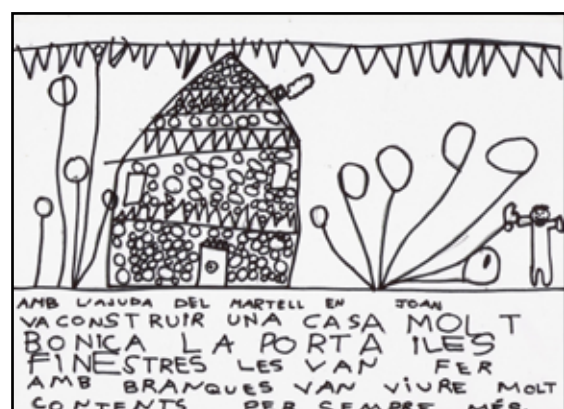 AMB L'AJUDA DEL MARTELL EN JOAN
VA CONSTRUIR UNA CASA MOLT
BONICA LA PORTA I LES
FINESTRES LES VAN FER
AMB BRANQUES VAN VIURE MOLT
CONTENTS PER SEMPRE MÉS.